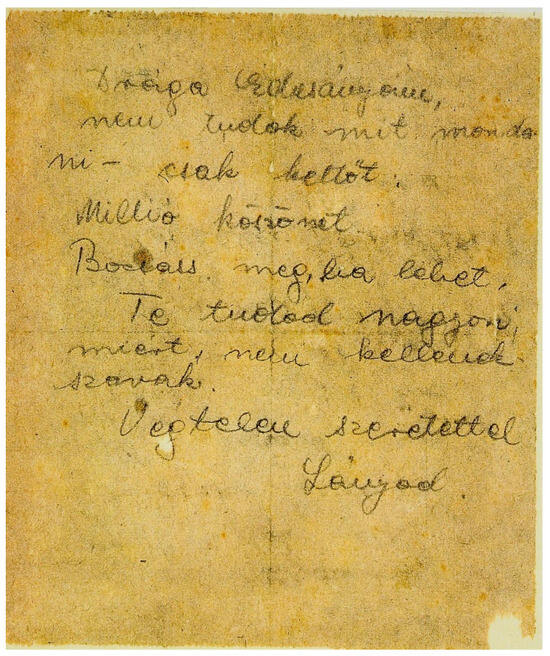 Drága Édesanyám,
nem tudok mit monda
ni – csak kettőt:
Millió köszönet
Bocsáss meg, ha lehet.
Te tudod nagyon,
miért, nem kellenek
szavak.
Végtelen szeretettel
Lányod.